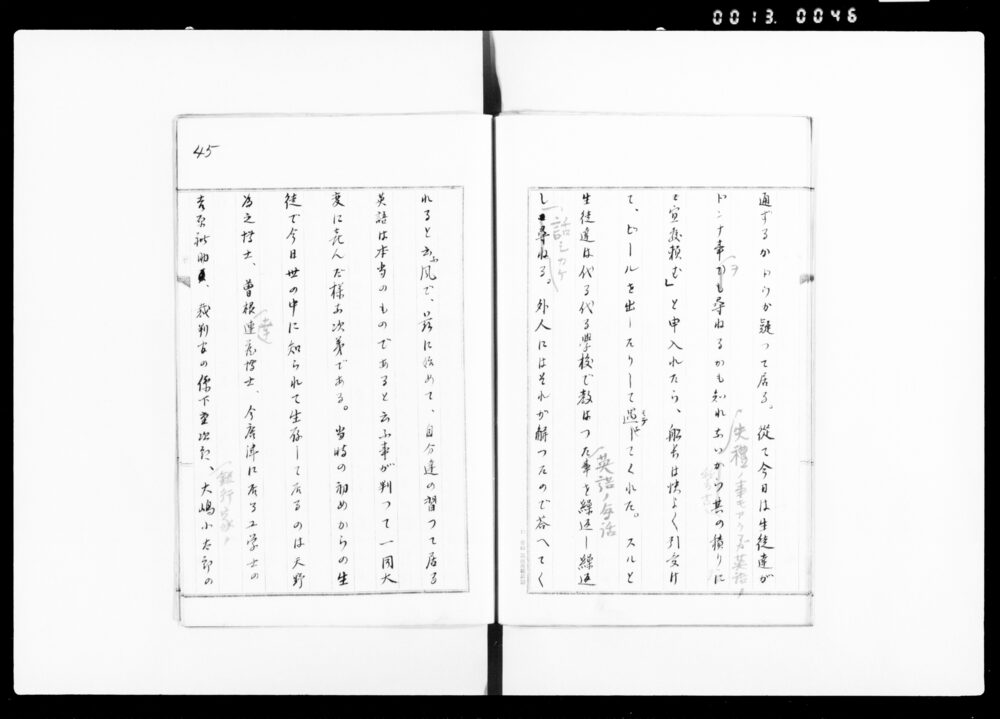 0013. 0046
通ずるかドウか疑つて居る。従て今日は生徒達が
ヲ
ドンナ事でも尋ねるかも知れないから其の積りに
失禮ノ事モアラウ 英語ノ
て宜敷頼む」と申入れたら、船長は快よく引受け
て、ビールを出したりして遇してくれた。スルと
英語ノ会話
生徒達は代る代る學校で教はつた事を繰返し繰返
話シカケ
し尋ねる。外人にはそれが解つたので答へてく
45
れると云ふ風で、茲に始めて、自分達の習つて居る
英語は本当のものであると云ふ事が判つて一同大
変に喜んだ様な次第である。当時の初めからの生
徒で今日世の中に知られて生存して居るのは天野
為之博士、曽根達蔵博士、今唐津に居る工学士の
達
吉原政助君、裁判官の掛下重次郎、大嶋小太郎の
銀行家ノ